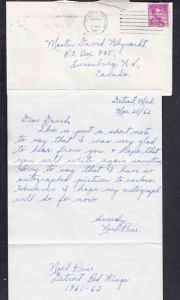 Master David Wohynackt
P.O. Box 995,
Lunenburg, N.S.
Canada.
Detroit, Mich
Mar 20/62
Dear David,
This is just a short note
to say that I was very glad
to hear from you & hope that
you will write again sometime
Sorry to say that I have no
autographed picture to enclose.
However I hope my autograph
will do for now.
Sincerely
Noel Price.
Noel Price
Detroit Red Wings
1961-62